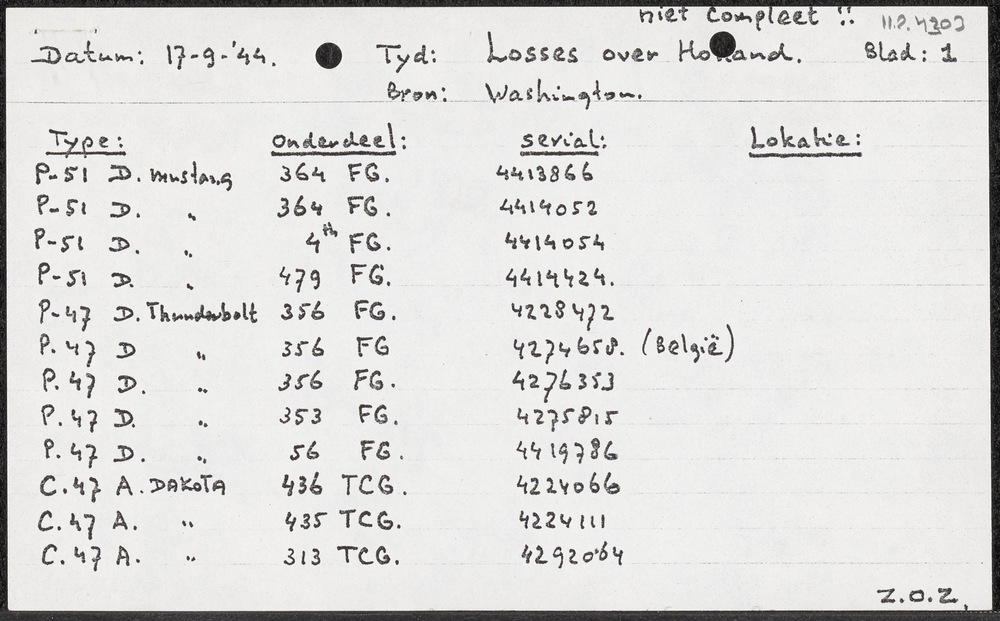 niet compleet !! 11.2.4303
Datum: 17-9-'44. Tyd: Losses over Holland. Blad: 1
Bron: Washington.
Type: Onderdeel: serial: Lokatie:
P-51 D. mustang 364 FG. 4413866
P-51 D. " 364 FG. 4414052
P-51 D. " 4th FG. 4414054
P-51 D. " 479 FG. 4414424.
P-47 D. Thunderbolt 356 FG. 4228472
P.47 D " 356 FG 4274658. (België)
P.47 D. " 356 FG. 4276353
P.47 D. " 353 FG. 4275815
P.47 D. " 56 FG. 4419786
C.47 A. DAKOTA 436 TCG. 4224066
C.47 A. " 435 TCG. 4224111
C.47 A. " 313 TCG. 4292064
Z.O.Z.